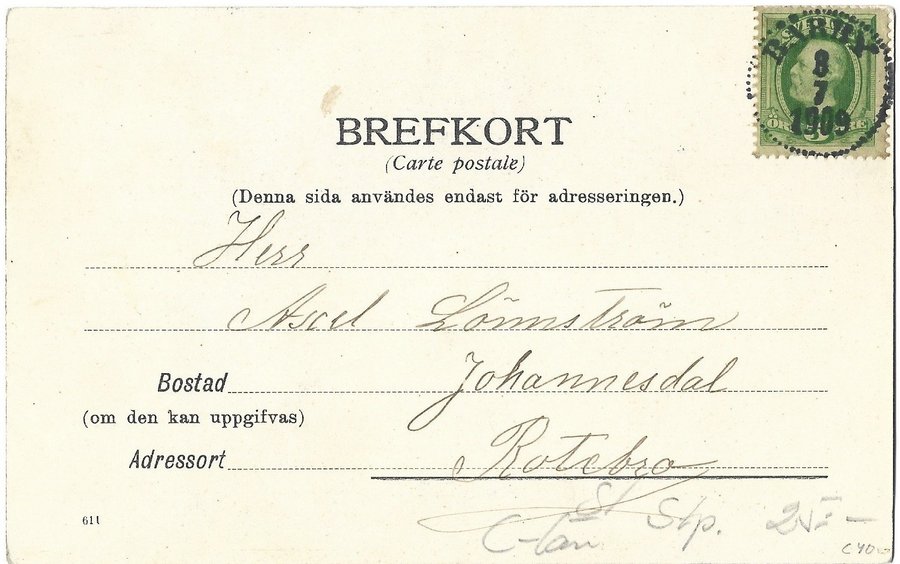 BREFKORT
(Carte postale)
(Denna sida användes endast för adresseringen.)
8
7
1909
Herr
Axel Lönnström
Bostad Johannesdal
(om den kan uppgifvas)
Adressort Rotebro
611
Stp.